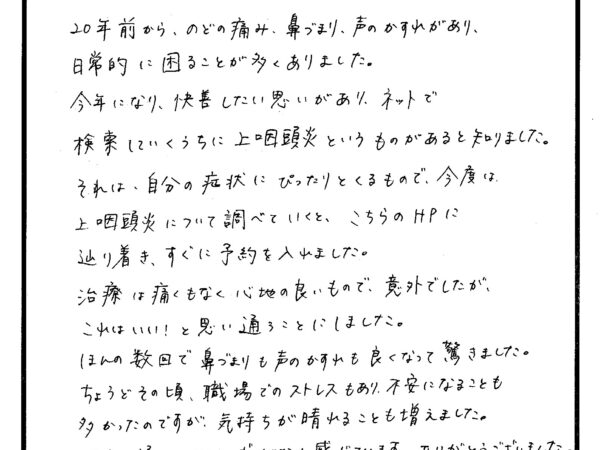 20年前から、のどの痛み、鼻づまり、声のかすれがあり、
日常的に困ることが多くありました。
今年になり、快善したい思いがあり、ネットで
検索していくうちに上咽頭炎というものがあると知りました。
それは、自分の症状にぴったりとくるもので、今度は
上咽頭炎について調べていくと、こちらのHPに
辿り着き、すぐに予約を入れました。
治療は痛くもなく心地の良いもので、意外でしたが、
これはいい!と思い通うことにしました。
ほんの数回で鼻づまりも声のかすれも良くなって驚きました。
ちょうどその頃、職場でのストレスもあり、不安になることも
多かったのですが、気持ちが晴れることも増えました。
感じています。ありがとうございました。